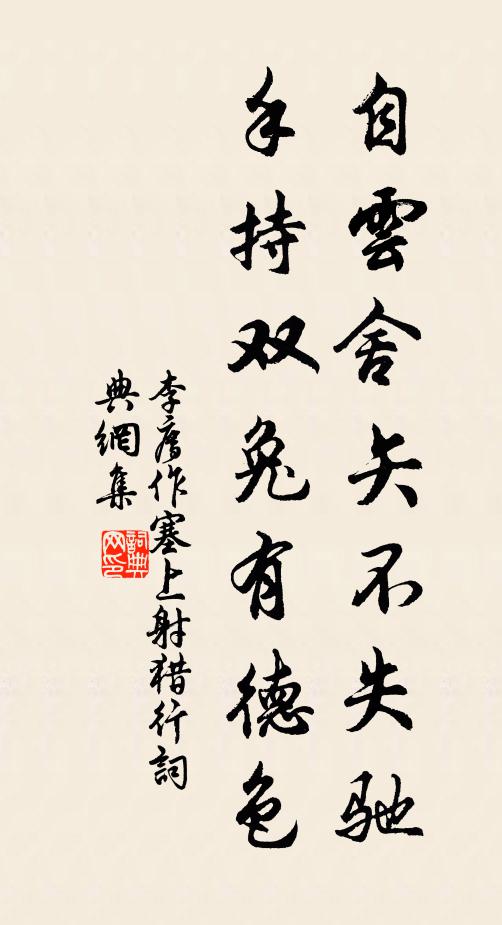 自雲舍矢不失馳
手持双兔有德色
李廌作塞上射猎行詞
典網集
詞典
网印